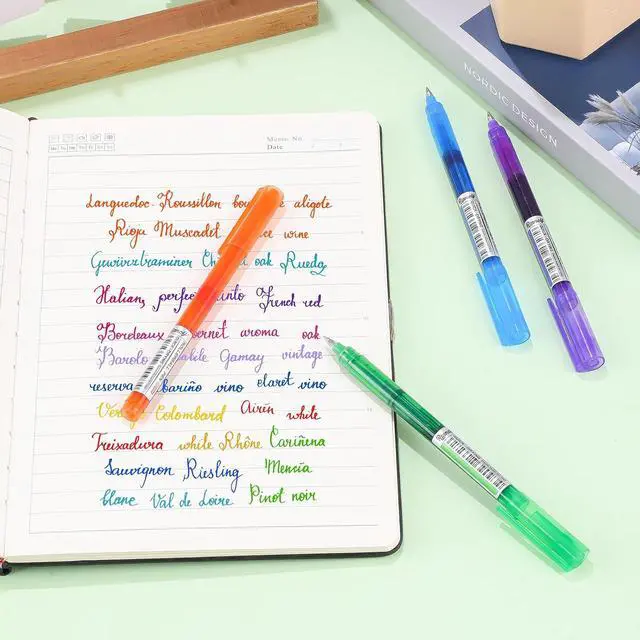 NORDIC DESIGN
Memo No.
Date
Mo Tu We Th Fr Sa Su
Languedoc-Roussillon aligote
Rioja Muscadet wine
Gewürztraminer oak Rueda
Italian, perfect into French red
Bordeaux aroma oak
Barolo Gamay vintage
reserva vino claret vino
Colombard Airén white
Treixadura white Rhône Cariñena
Sauvignon Riesling Mencia
blanc Val de Loire Pinot noir